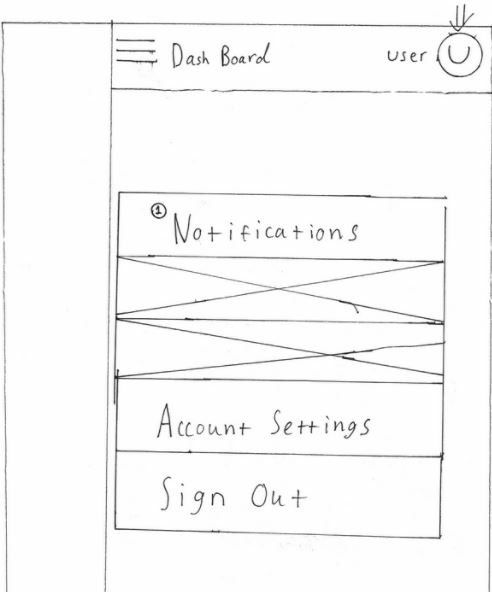 Dash Board user U
① Notifications
Account Settings
Sign Out